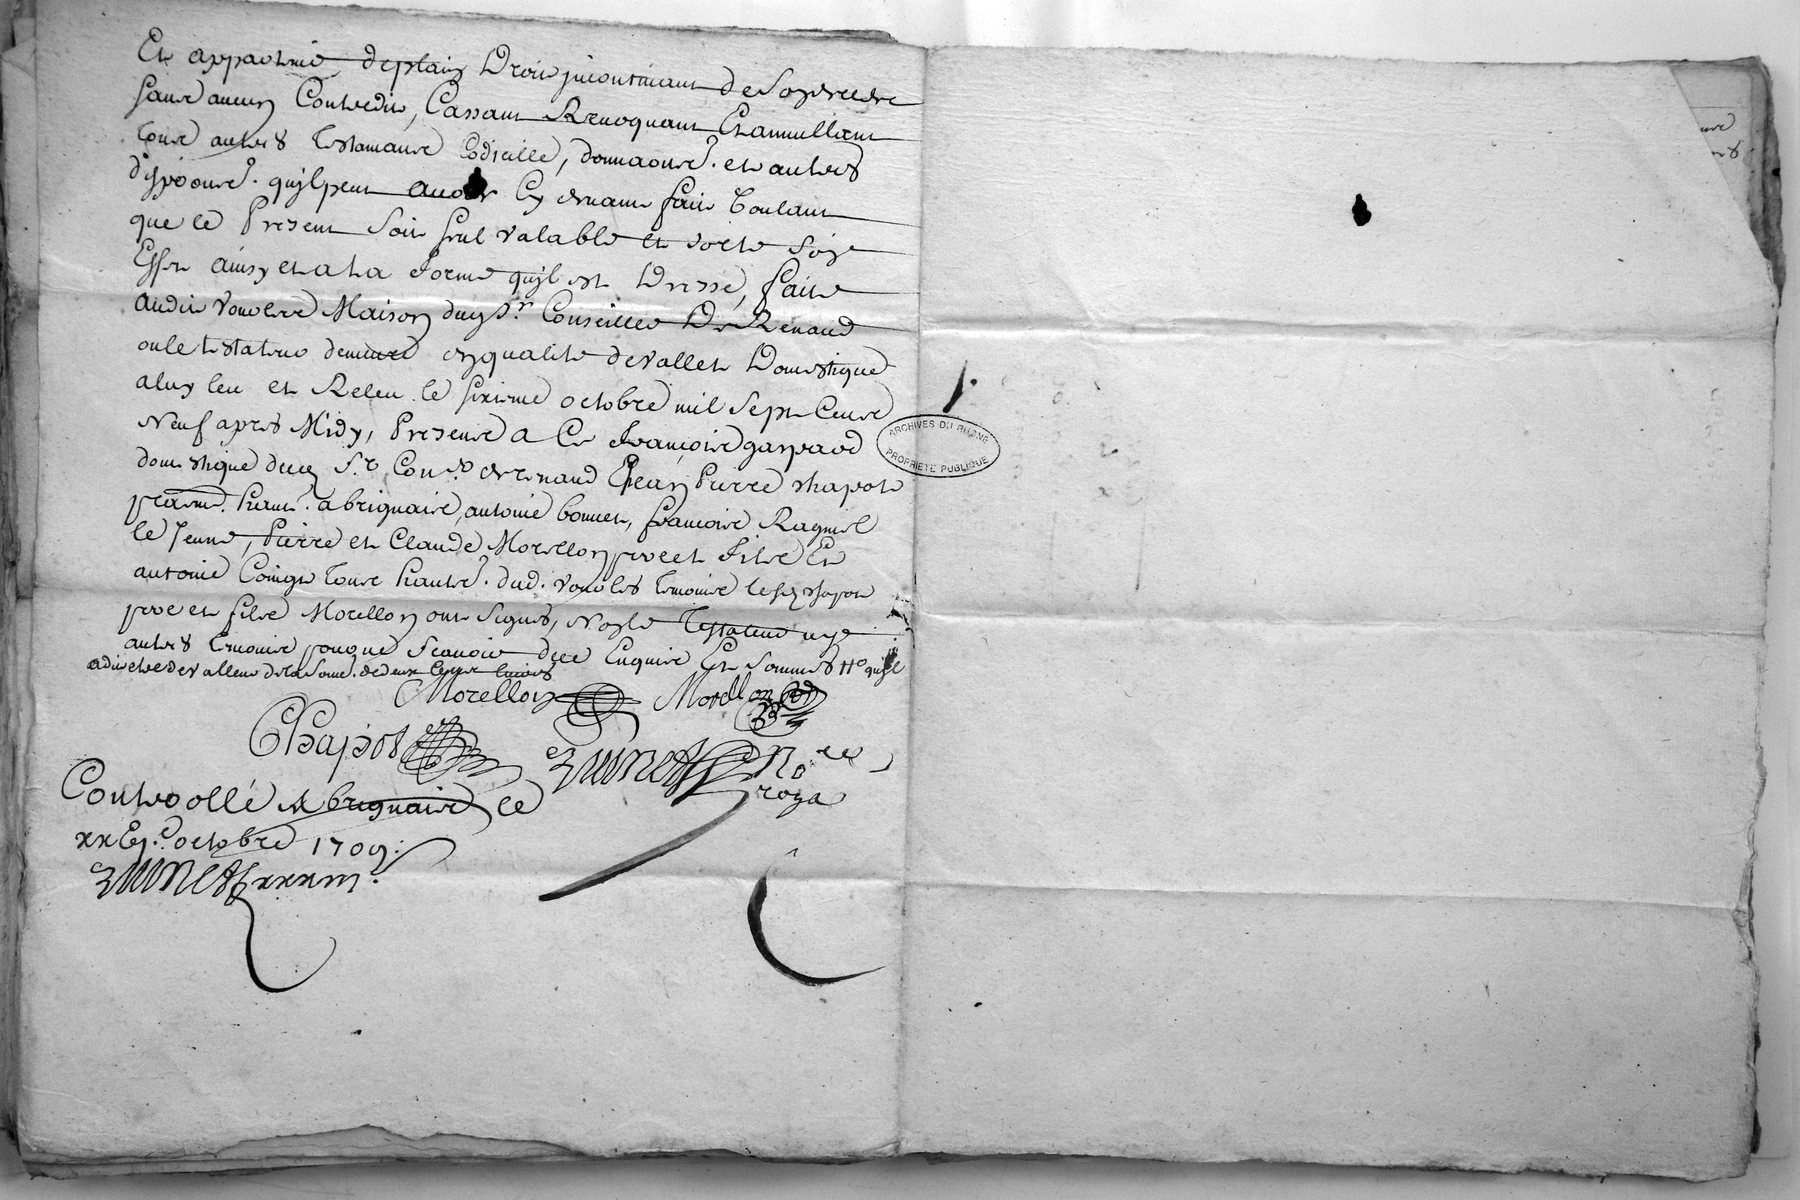 Et appartenir deplain Droit jncontinant
sans aucun Contredit, Cassant Revoquant Et annullant
tous autres testamans Codicille, donnaons. et autres
dispoons. quil peut avoir Cy devant fait voulant
que le Present soit seul valable et sorte son
Effet ainsy et a la forme quil est Dressé, fait
audit Vourles Maison dud Sr. Conseiller De Renaud
ou le testateur demeure en qualité de vallet Domestique
a luy leu et Releu le sixieme octobre mil sept Cens
Neuf apres Midy, Presens a Ce francois gaspard
domestique dud Sr. Conr. de renaud Jean Pierre Chapot
hant. a brignais, antoine bonnet, francois Ragniel
le Jeune, Pierre et Claude Morellon pere et fils Et
antoine Coings tous hants. dud. vourles temoins lesd Chapot
pere et fils Morellon ont signés, Non le Testateur ny
autres temoins pour ne scavoir de ce Enquis Et sommés
Morellon Morellon
Chapot
Nore
royal
Controllé A brignais le
xx En. octobre 1709.
ARCHIVES DU RHONE
PROPRIETE PUBLIQUE